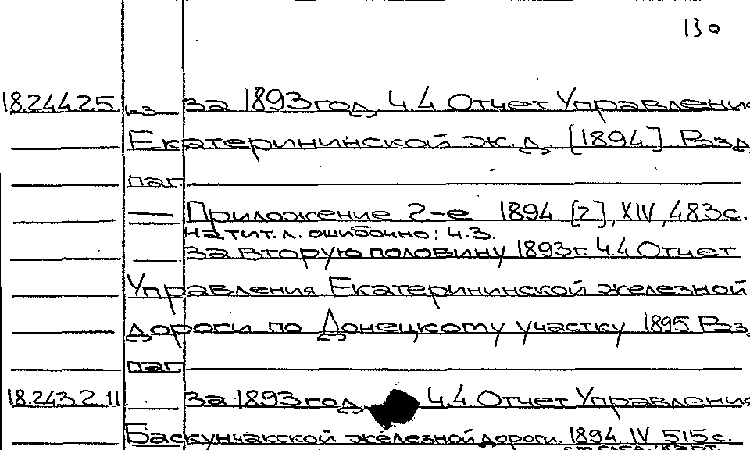 130
18.244.2.5 из за 1893 год, ч.4 Отчет Управления
Екатерининской ж.д. [1894] Разд
паг
— Приложение 2-е 1894 [2], XIV, 483 с.
На тит. л. ошибочно: ч.3.
за вторую половину 1893 г. ч.4 Отчет
Управления Екатерининской железной
дороги по Донецкому участку 1895 Разд
паг
18.243.2.11 за 1893 год ч.4 Отчет Управления
Баскунчакской железной дороги. 1894 IV 515 с.